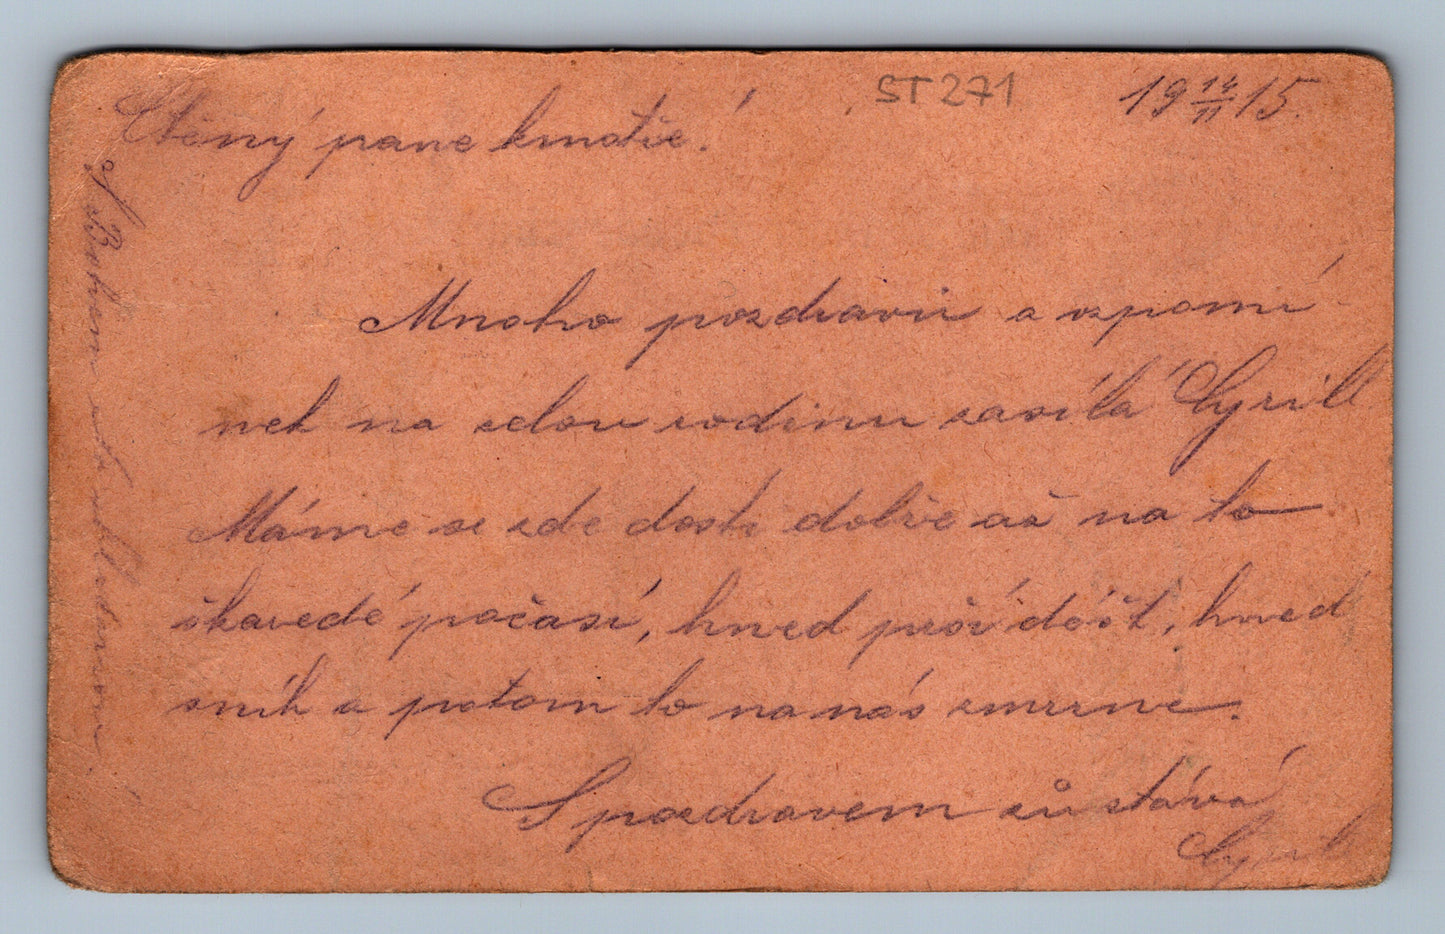 ST 271
19 14/11 15.
Ctěný pane kmotře!
Mnoho pozdravů a vzpomí
nek na celou rodinu zasílá Cyrill
Máme se zde dosti dobře až na to
škaredé počasí, hned prší déšť, hned
sníh a potom to na nás zmrzne.
S pozdravem zůstává
Cyril
S Bohem na shledanou